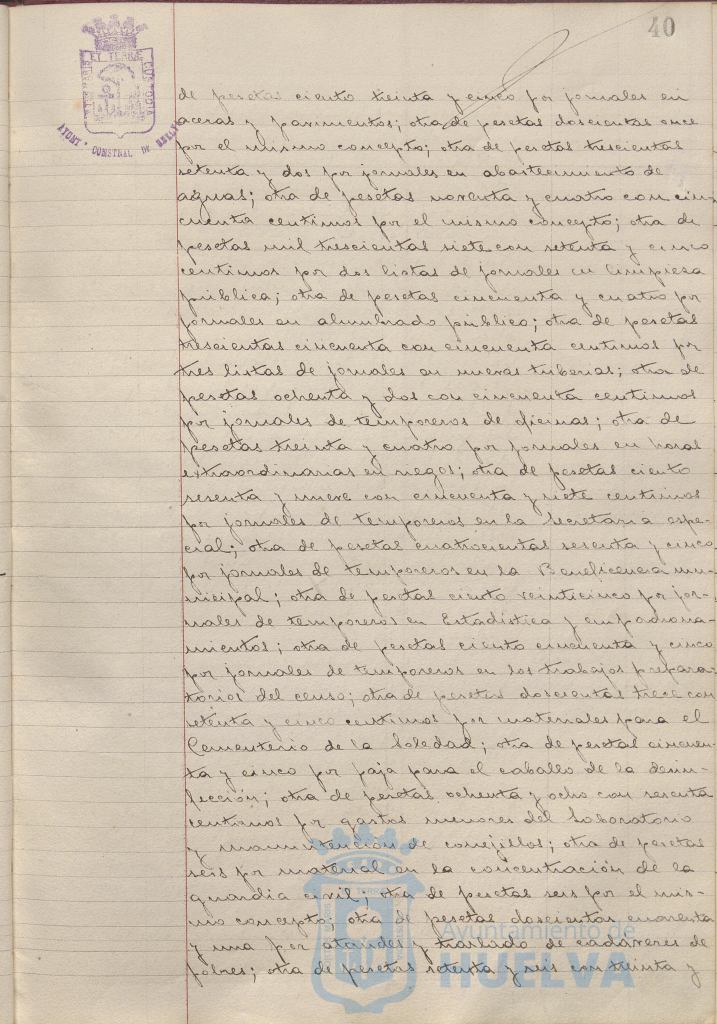 40
AYUNT. CONSTNAL. DE HUELVA
de pesetas ciento treinta y cinco por jornales en
aceras y pavimentos; otra de pesetas doscientas once
por el mismo concepto; otra de pesetas trescientas
setenta y dos por jornales en abastecimiento de
aguas; otra de pesetas noventa y cuatro con cin-
cuenta centimos por el mismo concepto; otra de
pesetas mil trescientas siete con setenta y cinco
centimos por dos listas de jornales en limpiesa
pública; otra de pesetas cincuenta y cuatro por
jornales en alumbrado público; otra de pesetas
trescientas cincuenta con cincuenta centimos por
tres listas de jornales en nuevas tuberias; otra de
pesetas ochenta y dos con cincuenta centimos
por jornales de temporeros de oficinas; otra de
pesetas treinta y cuatro por jornales en horas
extraordinarias en riegos; otra de pesetas ciento
sesenta y nueve con cincuenta y siete centimos
por jornales de temporeros en la Secretaria espe-
cial; otra de pesetas cuatrocientas sesenta y cinco
por jornales de temporeros en la Beneficencia mu-
nicipal; otra de pesetas ciento veinticinco por jor-
nales de temporeros en Estadística y empadrona-
mientos; otra de pesetas ciento cincuenta y cinco
por jornales de temporeros en los trabajos prepara-
torios del censo; otra de pesetas doscientas trece con
setenta y cinco centimos por materiales para el
Cementerio de la Soledad; otra de pesetas cincuen-
ta y cinco por paja para el caballo de la desin-
fección; otra de pesetas ochenta y ocho con sesenta
centimos por gastos menores del Laboratorio
y manuntención de conejillos; otra de pesetas
seis por material en la concentración de la
guardia civil; otra de pesetas seis por el mis-
mo concepto; otra de pesetas doscientas cuarenta
y una por ataudes y traslado de cadaveres de
pobres; otra de pesetas setenta y seis con treinta y
Ayuntamiento de
HUELVA